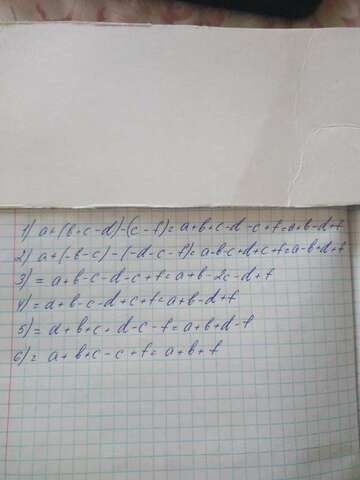 1) a+(b+c-d)-(c-f)=a+b+c-d-c+f=a+b-d+f
2) a+(-b-c)-(-d-c-f)=a-b-c+d+c+f=a-b+d+f
3) = a+b-c-d-c+f=a+b-2c-d+f
4) = a+b-c-d+c+f=a+b-d+f
5) = a+b+c+d-c-f=a+b+d-f
6) = a+b+c-c+f=a+b+f